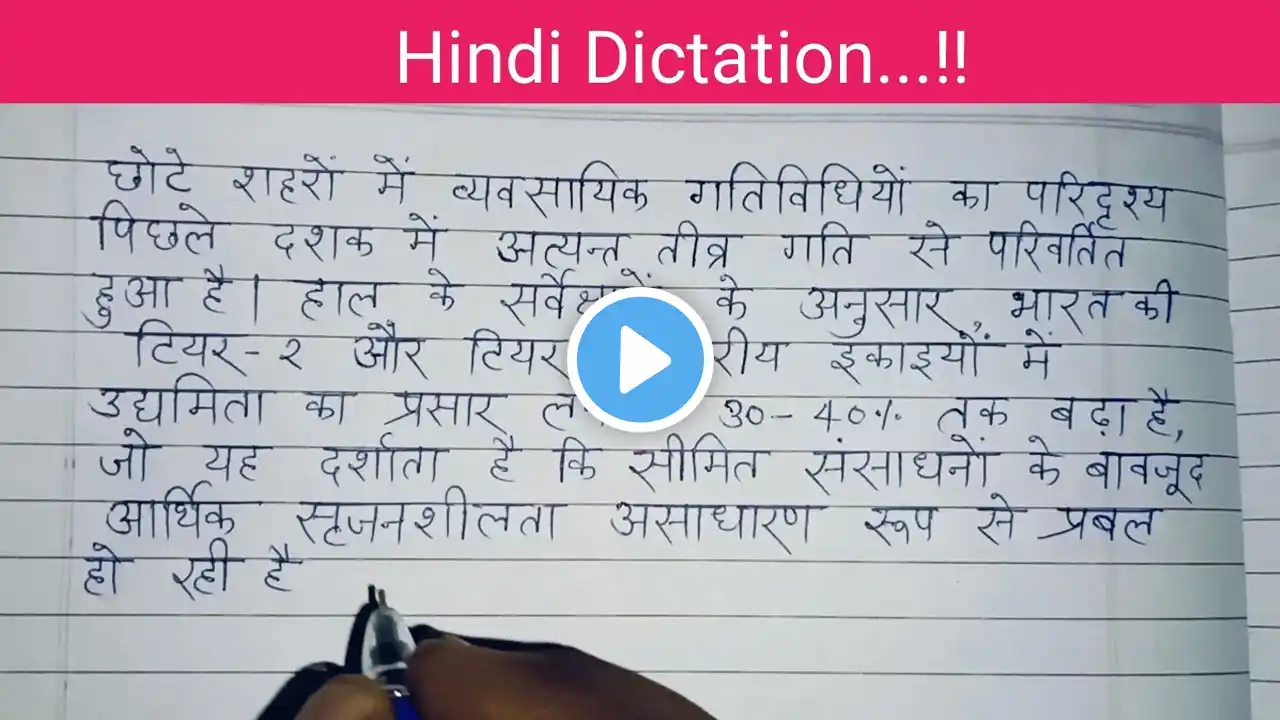 Hindi Dictation...!!
छोटे शहरों में व्यवसायिक गतिविधियों का परिदृश्य
पिछले दशक में अत्यन्त तीव्र गति से परिवर्तित
हुआ है। हाल के के अनुसार, भारत की
टियर-२ और इकाइयों में
उद्यमिता का प्रसार 30-40% तक बढ़ा है,
जो यह दर्शाता है कि सीमित संसाधनों के बावजूद
आर्थिक सृजनशीलता असाधारण रूप से प्रबल
हो रही है